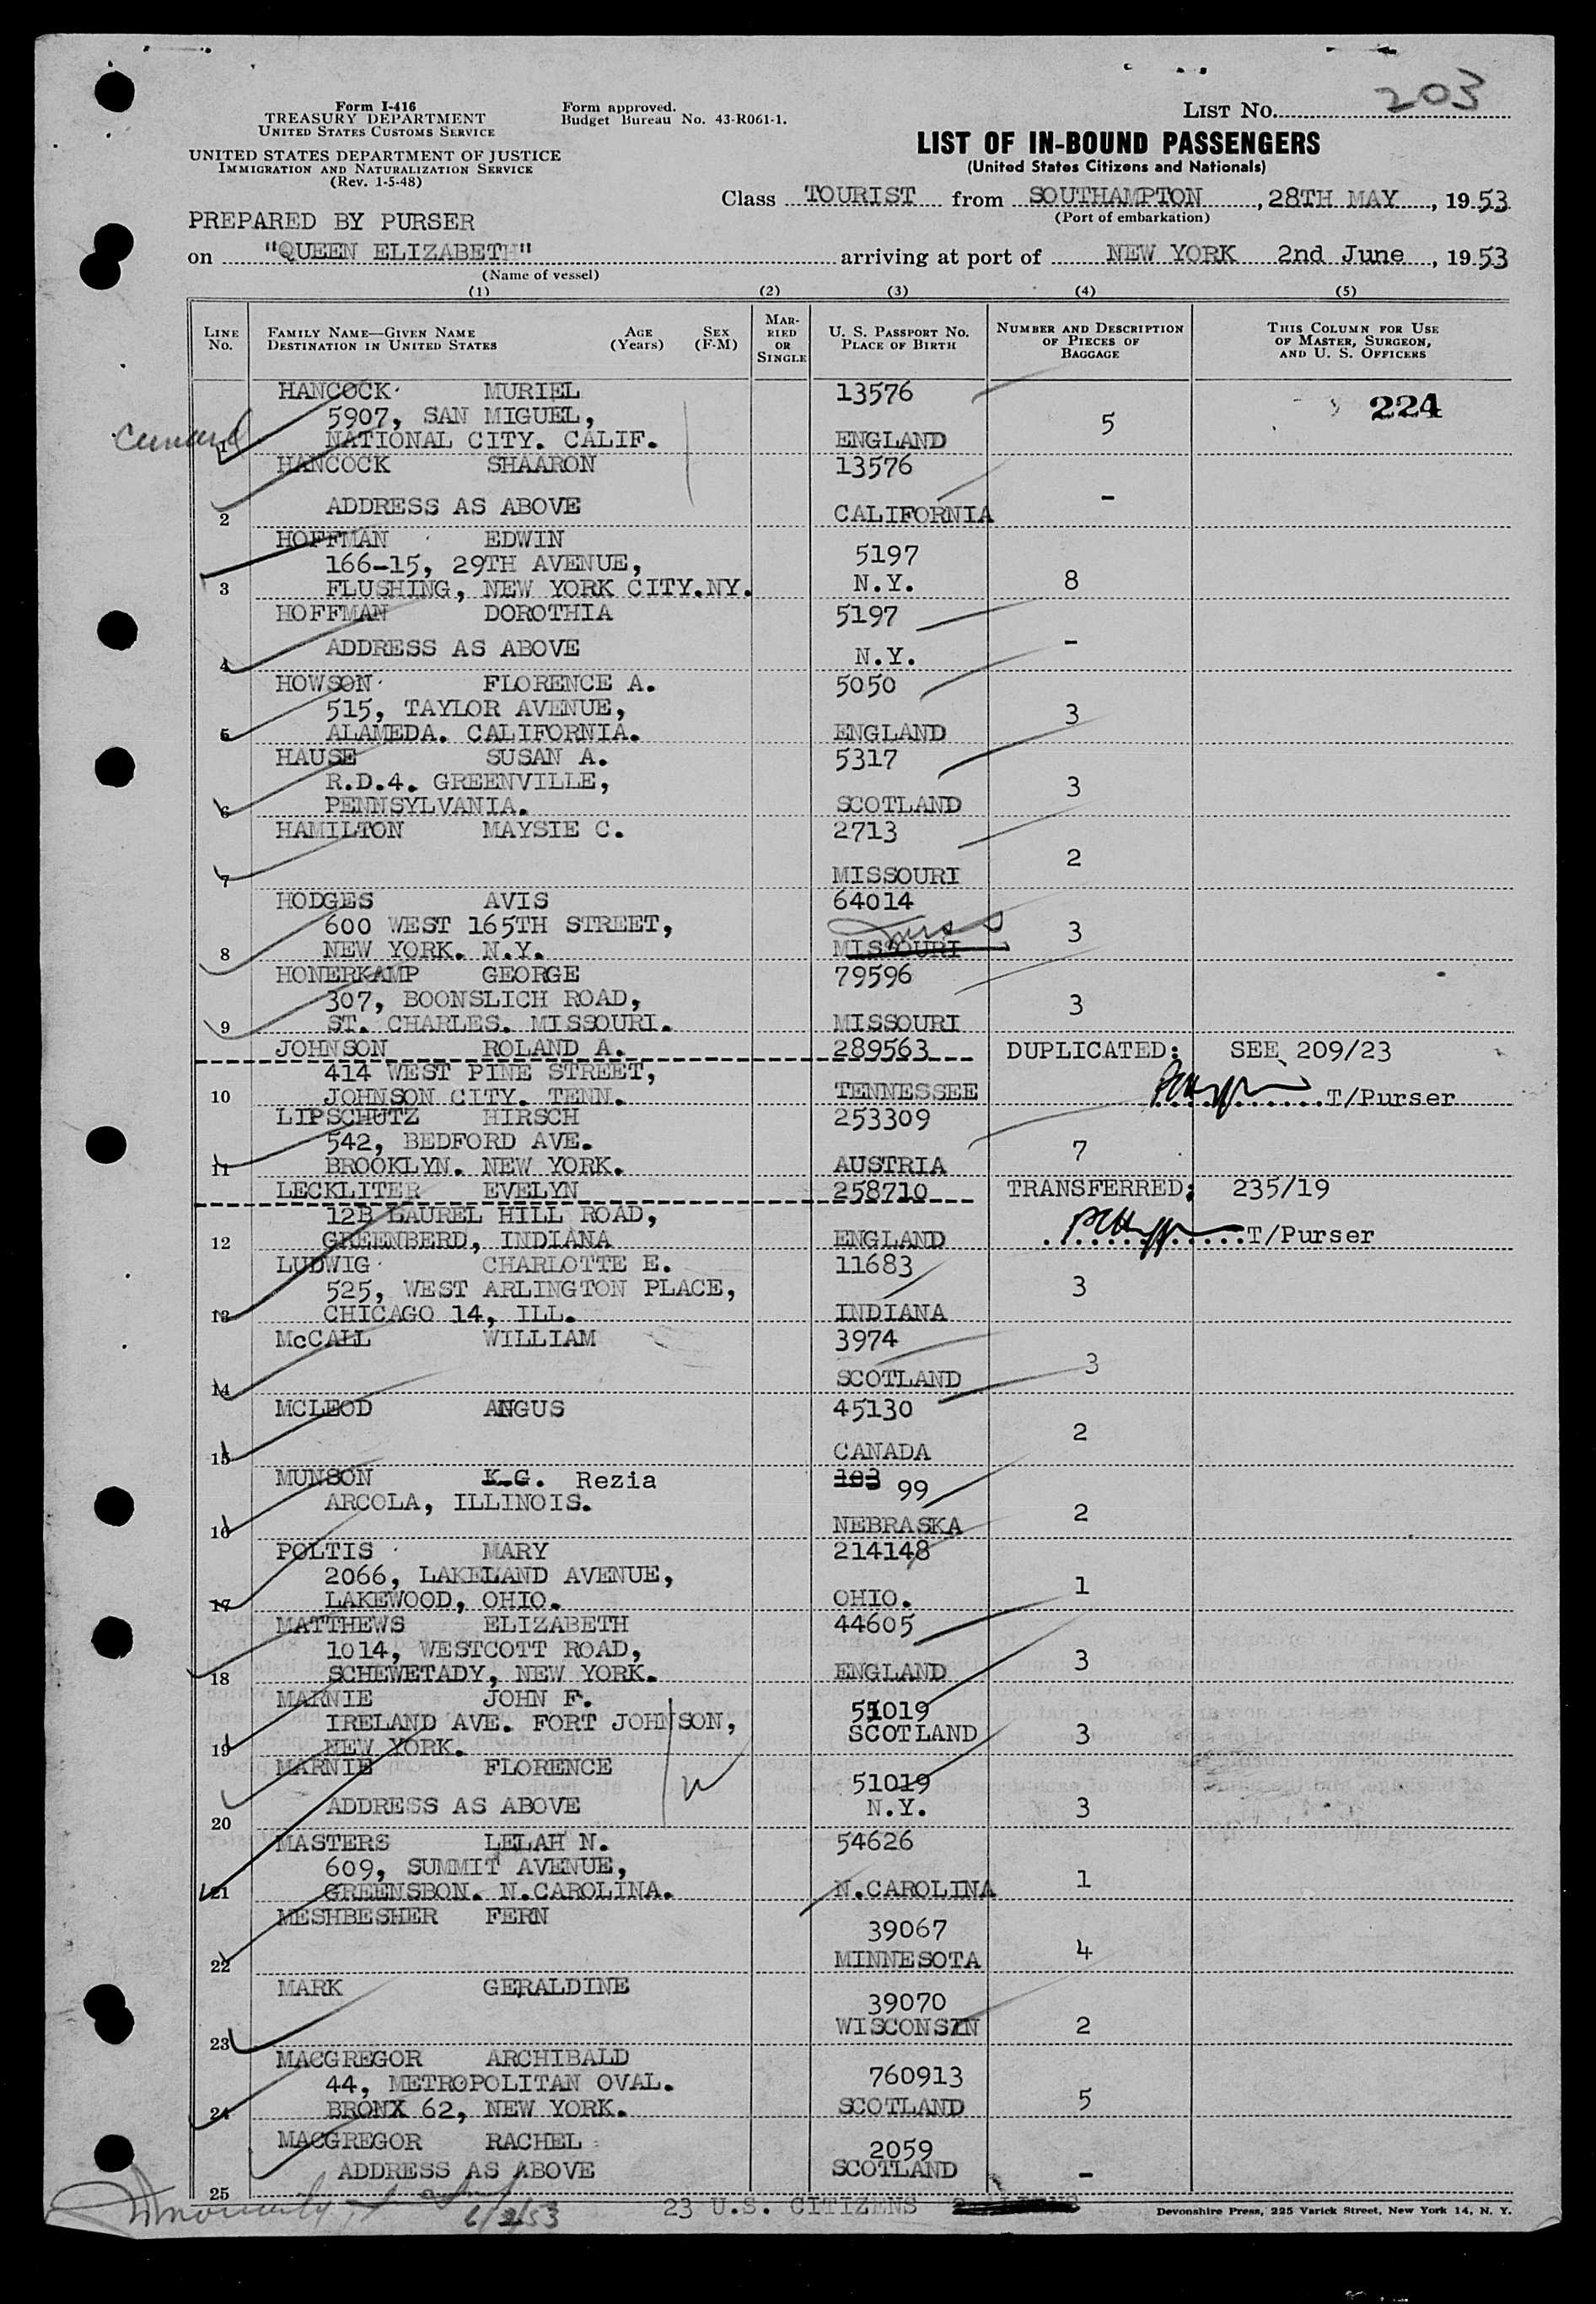 203
Form I-416
TREASURY DEPARTMENT
UNITED STATES CUSTOMS SERVICE
Form approved.
Budget Bureau No. 43-R061-1.
LIST NO.
LIST OF IN-BOUND PASSENGERS
(United States Citizens and Nationals)
UNITED STATES DEPARTMENT OF JUSTICE
IMMIGRATION AND NATURALIZATION SERVICE
(Rev. 1-5-48)
Class TOURIST from SOUTHAMPTON, 28TH MAY, 1953
(Port of embarkation)
PREPARED BY PURSER
on "QUEEN ELIZABETH" arriving at port of NEW YORK 2nd June, 1953
(Name of vessel)
(1) (2) (3) (4) (5)
LINE NO. FAMILY NAME—GIVEN NAME DESTINATION IN UNITED STATES AGE (Years) SEX (F-M) MARRIED OR SINGLE U. S. PASSPORT NO. PLACE OF BIRTH NUMBER AND DESCRIPTION OF PIECES OF BAGGAGE THIS COLUMN FOR USE OF MASTER, SURGEON, AND U. S. OFFICERS
HANCOCK MURIEL 13576
5907, SAN MIGUEL, 5 224
Cunard 1 NATIONAL CITY. CALIF. ENGLAND
HANCOCK SHAARON 13576
2 ADDRESS AS ABOVE CALIFORNIA -
HOFFMAN EDWIN
166-15, 29TH AVENUE, 5197
3 FLUSHING, NEW YORK CITY.NY. N.Y. 8
HOFFMAN DOROTHIA 5197
4 ADDRESS AS ABOVE N.Y. -
HOWSON FLORENCE A. 5050
515, TAYLOR AVENUE, 3
5 ALAMEDA. CALIFORNIA. ENGLAND
HAUSE SUSAN A. 5317
R.D.4. GREENVILLE, 3
6 PENNSYLVANIA. SCOTLAND
HAMILTON MAYSIE C. 2713
7 MISSOURI 2
HODGES AVIS 64014
600 WEST 165TH STREET, 3
8 NEW YORK. N.Y. MISSOURI
HONERKAMP GEORGE 79596
307, BOONSLICH ROAD, 3
9 ST. CHARLES. MISSOURI. MISSOURI
JOHNSON ROLAND A. 289563 DUPLICATED: SEE 209/23
414 WEST PINE STREET,
10 JOHNSON CITY. TENN. TENNESSEE T/Purser
LIPSCHUTZ HIRSCH 253309
542, BEDFORD AVE. 7
11 BROOKLYN. NEW YORK. AUSTRIA
LECKLITER EVELYN 258710 TRANSFERRED: 235/19
12B LAUREL HILL ROAD,
12 GREENBERD, INDIANA ENGLAND T/Purser
LUDWIG CHARLOTTE E. 11683
525, WEST ARLINGTON PLACE, 3
13 CHICAGO 14, ILL. INDIANA
McCALL WILLIAM 3974
14 SCOTLAND 3
MCLEOD ANGUS 45130
15 CANADA 2
MUNSON K.G. Rezia 103 99
ARCOLA, ILLINOIS. 2
16 NEBRASKA
POLTIS MARY 214148
2066, LAKELAND AVENUE, 1
17 LAKEWOOD, OHIO. OHIO.
MATTHEWS ELIZABETH 44605
1014, WESTCOTT ROAD, 3
18 SCHEWETADY, NEW YORK. ENGLAND
MARNIE JOHN F. 51019
IRELAND AVE. FORT JOHNSON, SCOTLAND 3
19 NEW YORK.
MARNIE FLORENCE 51019
20 ADDRESS AS ABOVE N.Y. 3
MASTERS LELAH N. 54626
609, SUMMIT AVENUE, 1
21 GREENSBON. N.CAROLINA. N.CAROLINA
MESHBESHER FERN 39067
22 MINNESOTA 4
MARK GERALDINE 39070
23 WISCONSIN 2
MACGREGOR ARCHIBALD
44, METROPOLITAN OVAL. 760913
24 BRONX 62, NEW YORK. SCOTLAND 5
MACGREGOR RACHEL 2059
ADDRESS AS ABOVE SCOTLAND -
25
6/2/53 23 U.S. CITIZENS
Devonshire Press, 225 Varick Street, New York 14, N. Y.